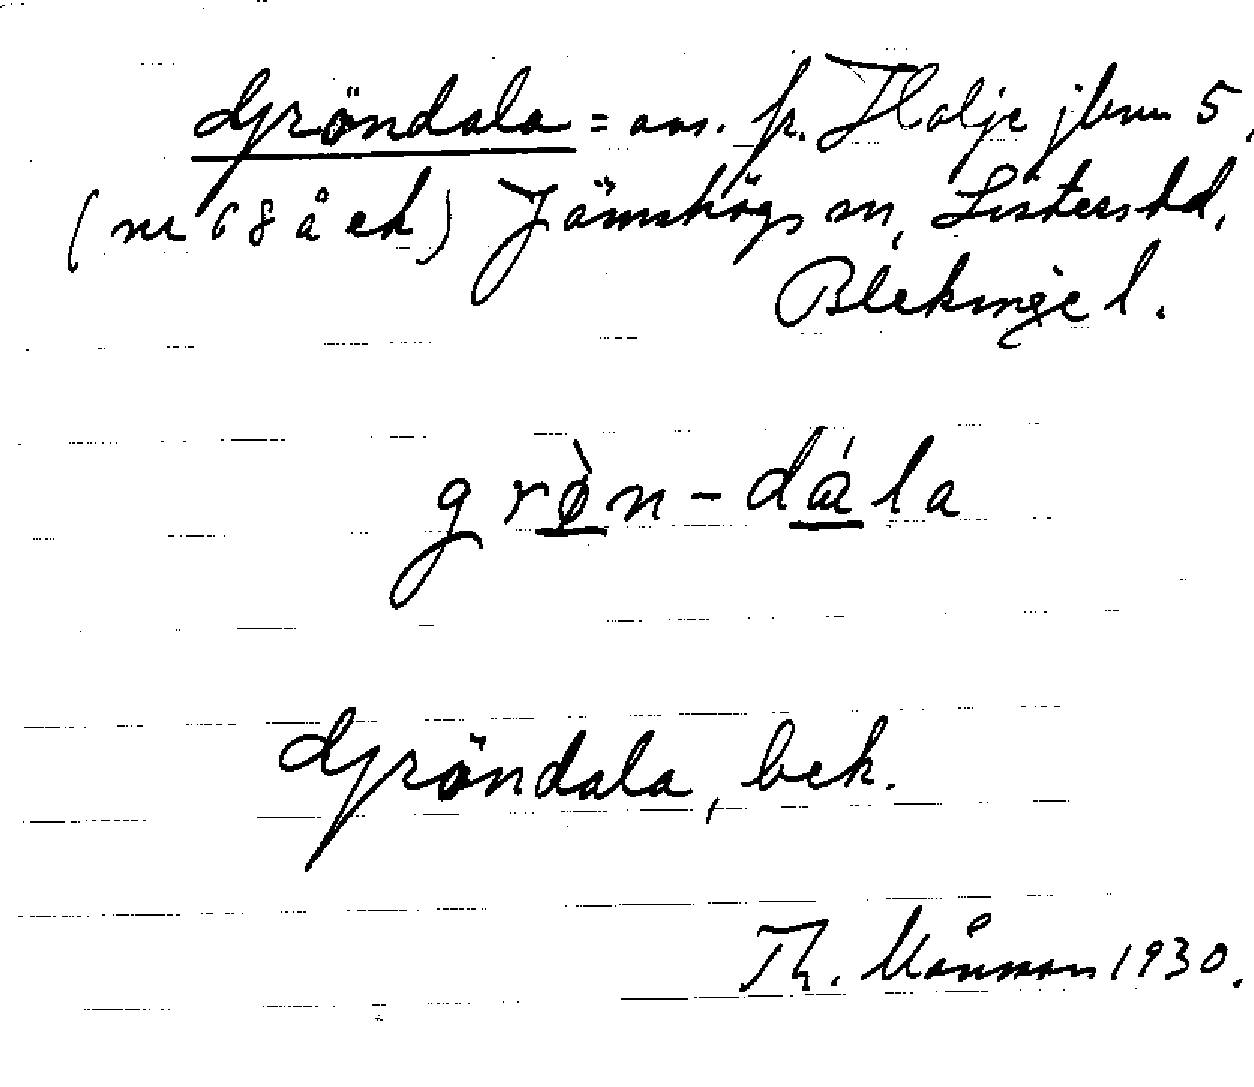 Gröndala = avs. fr. Halje jbnr 5,
(nr 68 å ek) Jämshögs sn, Listers hd,
Blekinge l.
grø̀n-dála
Gröndala, bek.
Th. Månsson 1930.